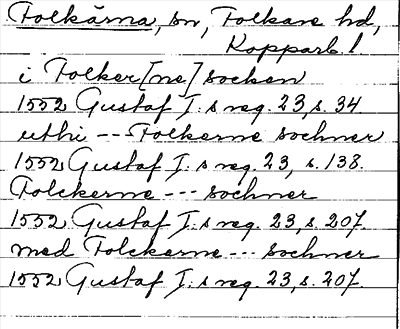 Folkärna, sn, Folkare hd,
Kopparb. l
i Folker[ne] socken
1552 Gustaf I:s reg. 23, s. 34
uthi --- Folkerne sochner
1552 Gustaf I:s reg. 23, s. 138.
Folckerne --- sochner
1552 Gustaf I:s reg. 23, s. 207.
med Folckerne --- sochner
1552 Gustaf I:s reg. 23, s. 207.